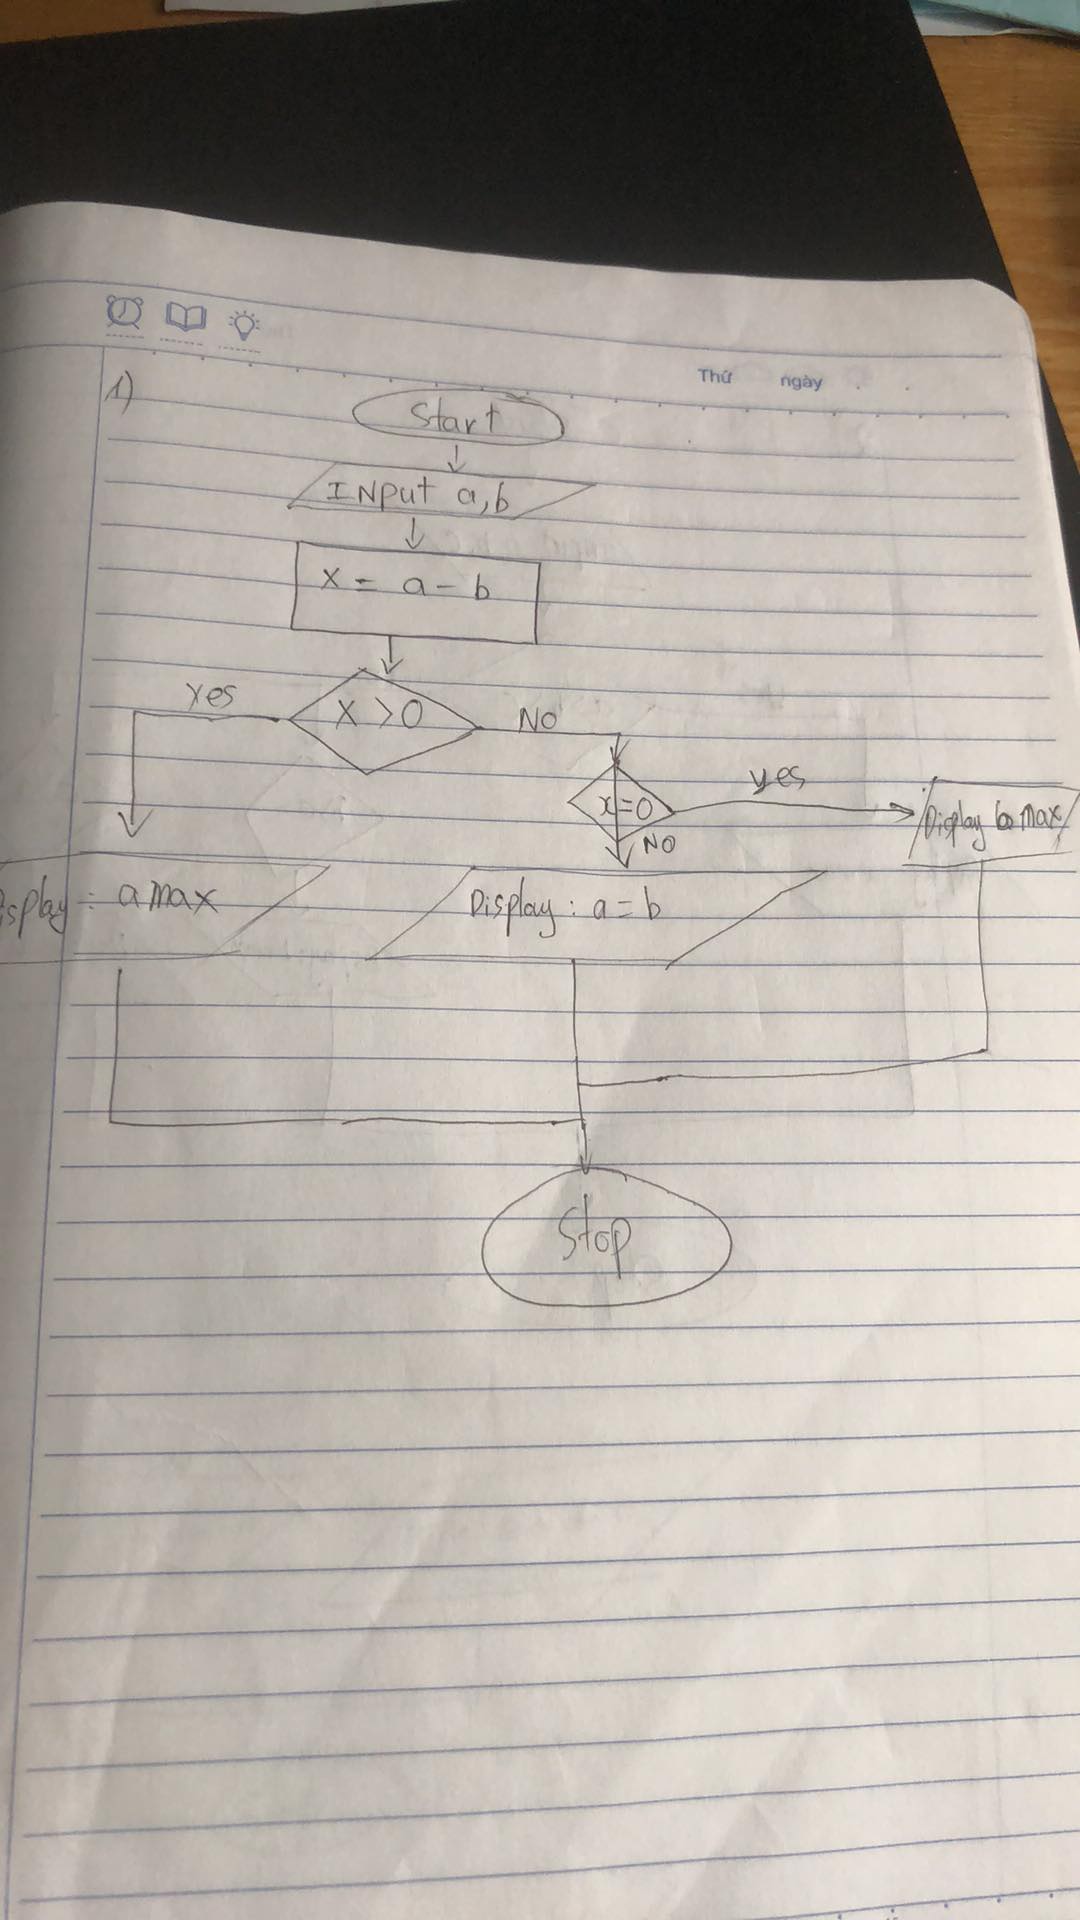 Thứ ngày
1)
Start
INput a,b
x = a - b
yes
x >0
NO
x=0
yes
NO
Display b max
Display : a max
Display : a = b
Stop